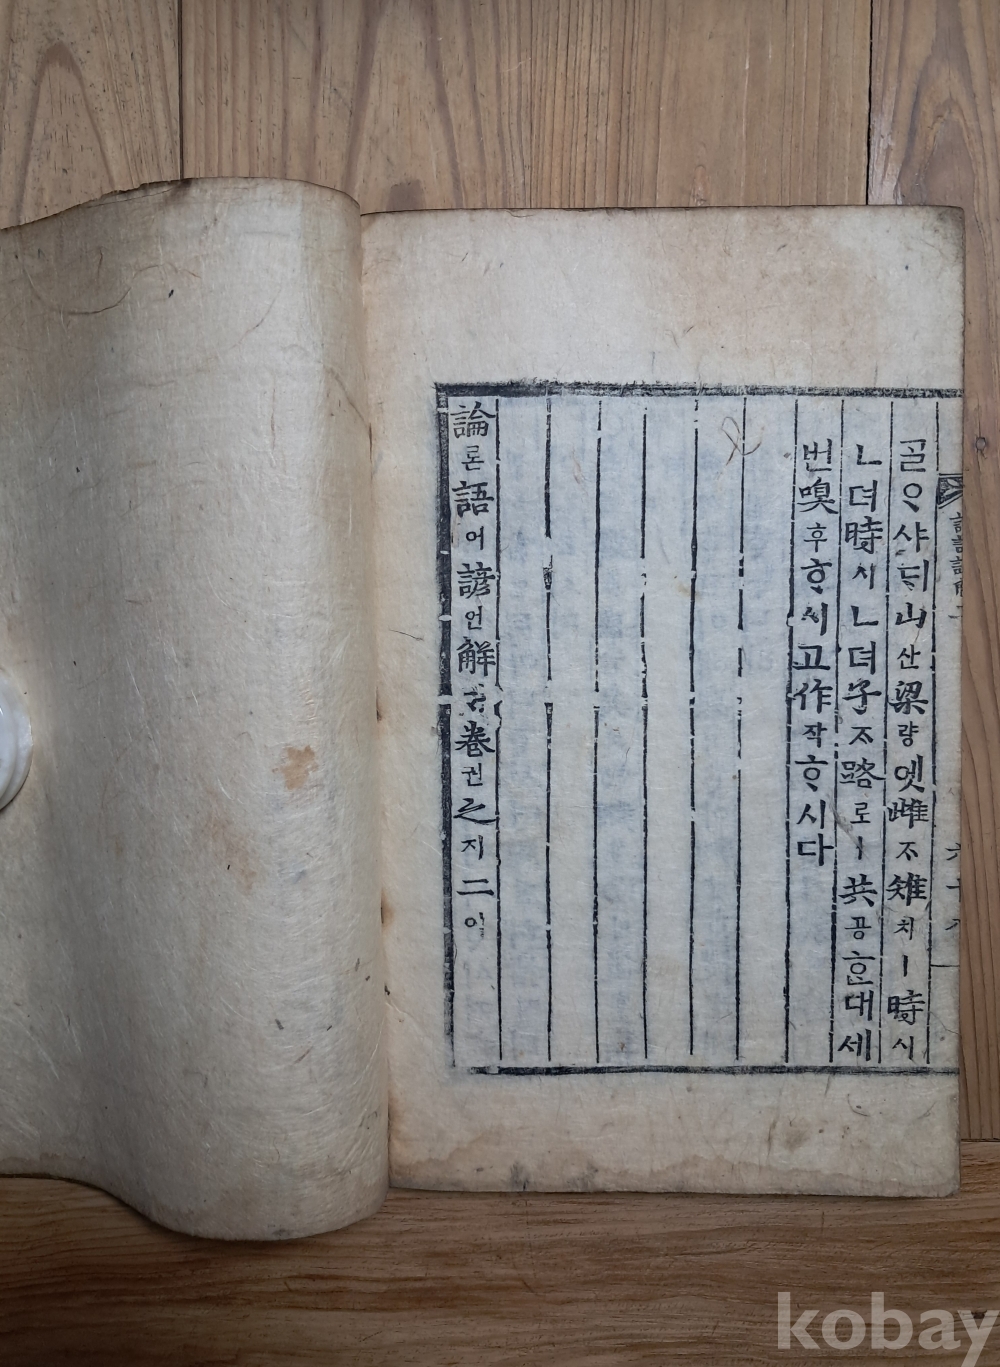 ᄀᆞᆯᄋᆞ샤ᄃᆡ山산梁량엣雌ᄌᆞ雉치ㅣ時시
ㄴ뎌時시ㄴ뎌子ᄌᆞ路로ㅣ共공ᄒᆞᆫ대세
번嗅후ᄒᆞ시고作작ᄒᆞ시다
論론語어諺언解ᄒᆡ卷권之지二이
kobay